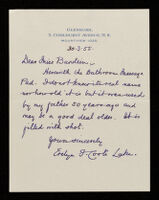 GLENSIDE,
5, COLLEGIATE AVENUE, N.E.
30-3-55
Dear Miss Burdon,
Herewith the Bathroom Massage
Pad. I do not know its real name
nor how old it is but it was used
by my father 50 years ago and
may be a good deal older. It is
filled with shot.
Yours sincerely
Evelyn F. Coote Lake.